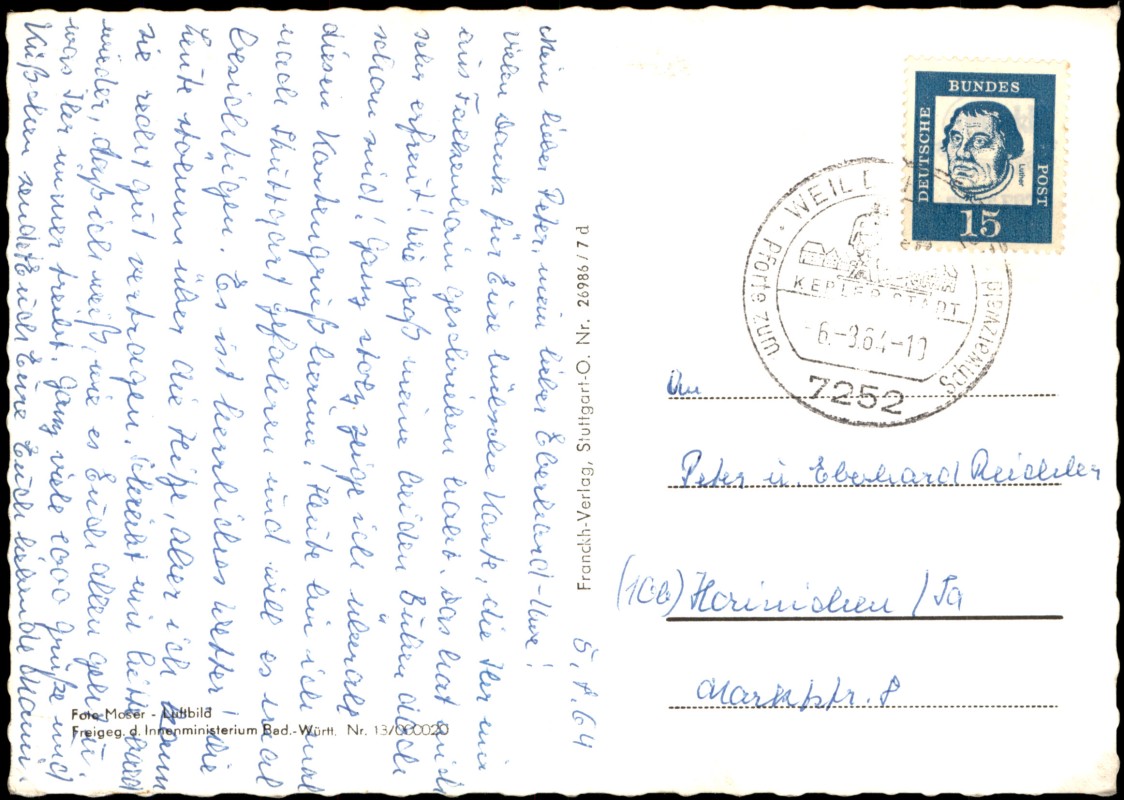 Mein lieber Peter, mein lieber Eberhard-Uwe!
Vielen Dank für Eure hübsche Karte, die Ihr mir
aus Falkenhain geschrieben habt. Das hat mich
sehr erfreut! Wie groß meine beiden Buben doch
schon sind! Ganz stolz zeige ich überall
diesen Kartengruß herum! Heute bin ich mal
nach Stuttgart gefahren und will es mal
besichtigen. Es ist herrliches Wetter! Die
Leute stöhnen über die Hitze, aber ich kann
sie recht gut vertragen. Schreibt mir bitte bald
wieder, daß ich weiß, wie es Euch allen geht u.
was Ihr immer treibt. Ganz viele 1000 Grüße und
Küßchen sendet Euch Eure Euch liebende Mammi.
5. 8. 64
Foto-Moser - Luftbild
Freigeg. d. Innenministerium Bad.-Württ. Nr. 13/000020
Franckh-Verlag, Stuttgart-O. Nr. 26986/7 d
DEUTSCHE
BUNDES
POST
Luther
15
WEIL
KEPLERSTADT
-6.-8.64-19
7252
Pforte zum
Schwarzwald
An
Peter u. Eberhard
(10b) Hainichen / Sa
Marktstr. 8